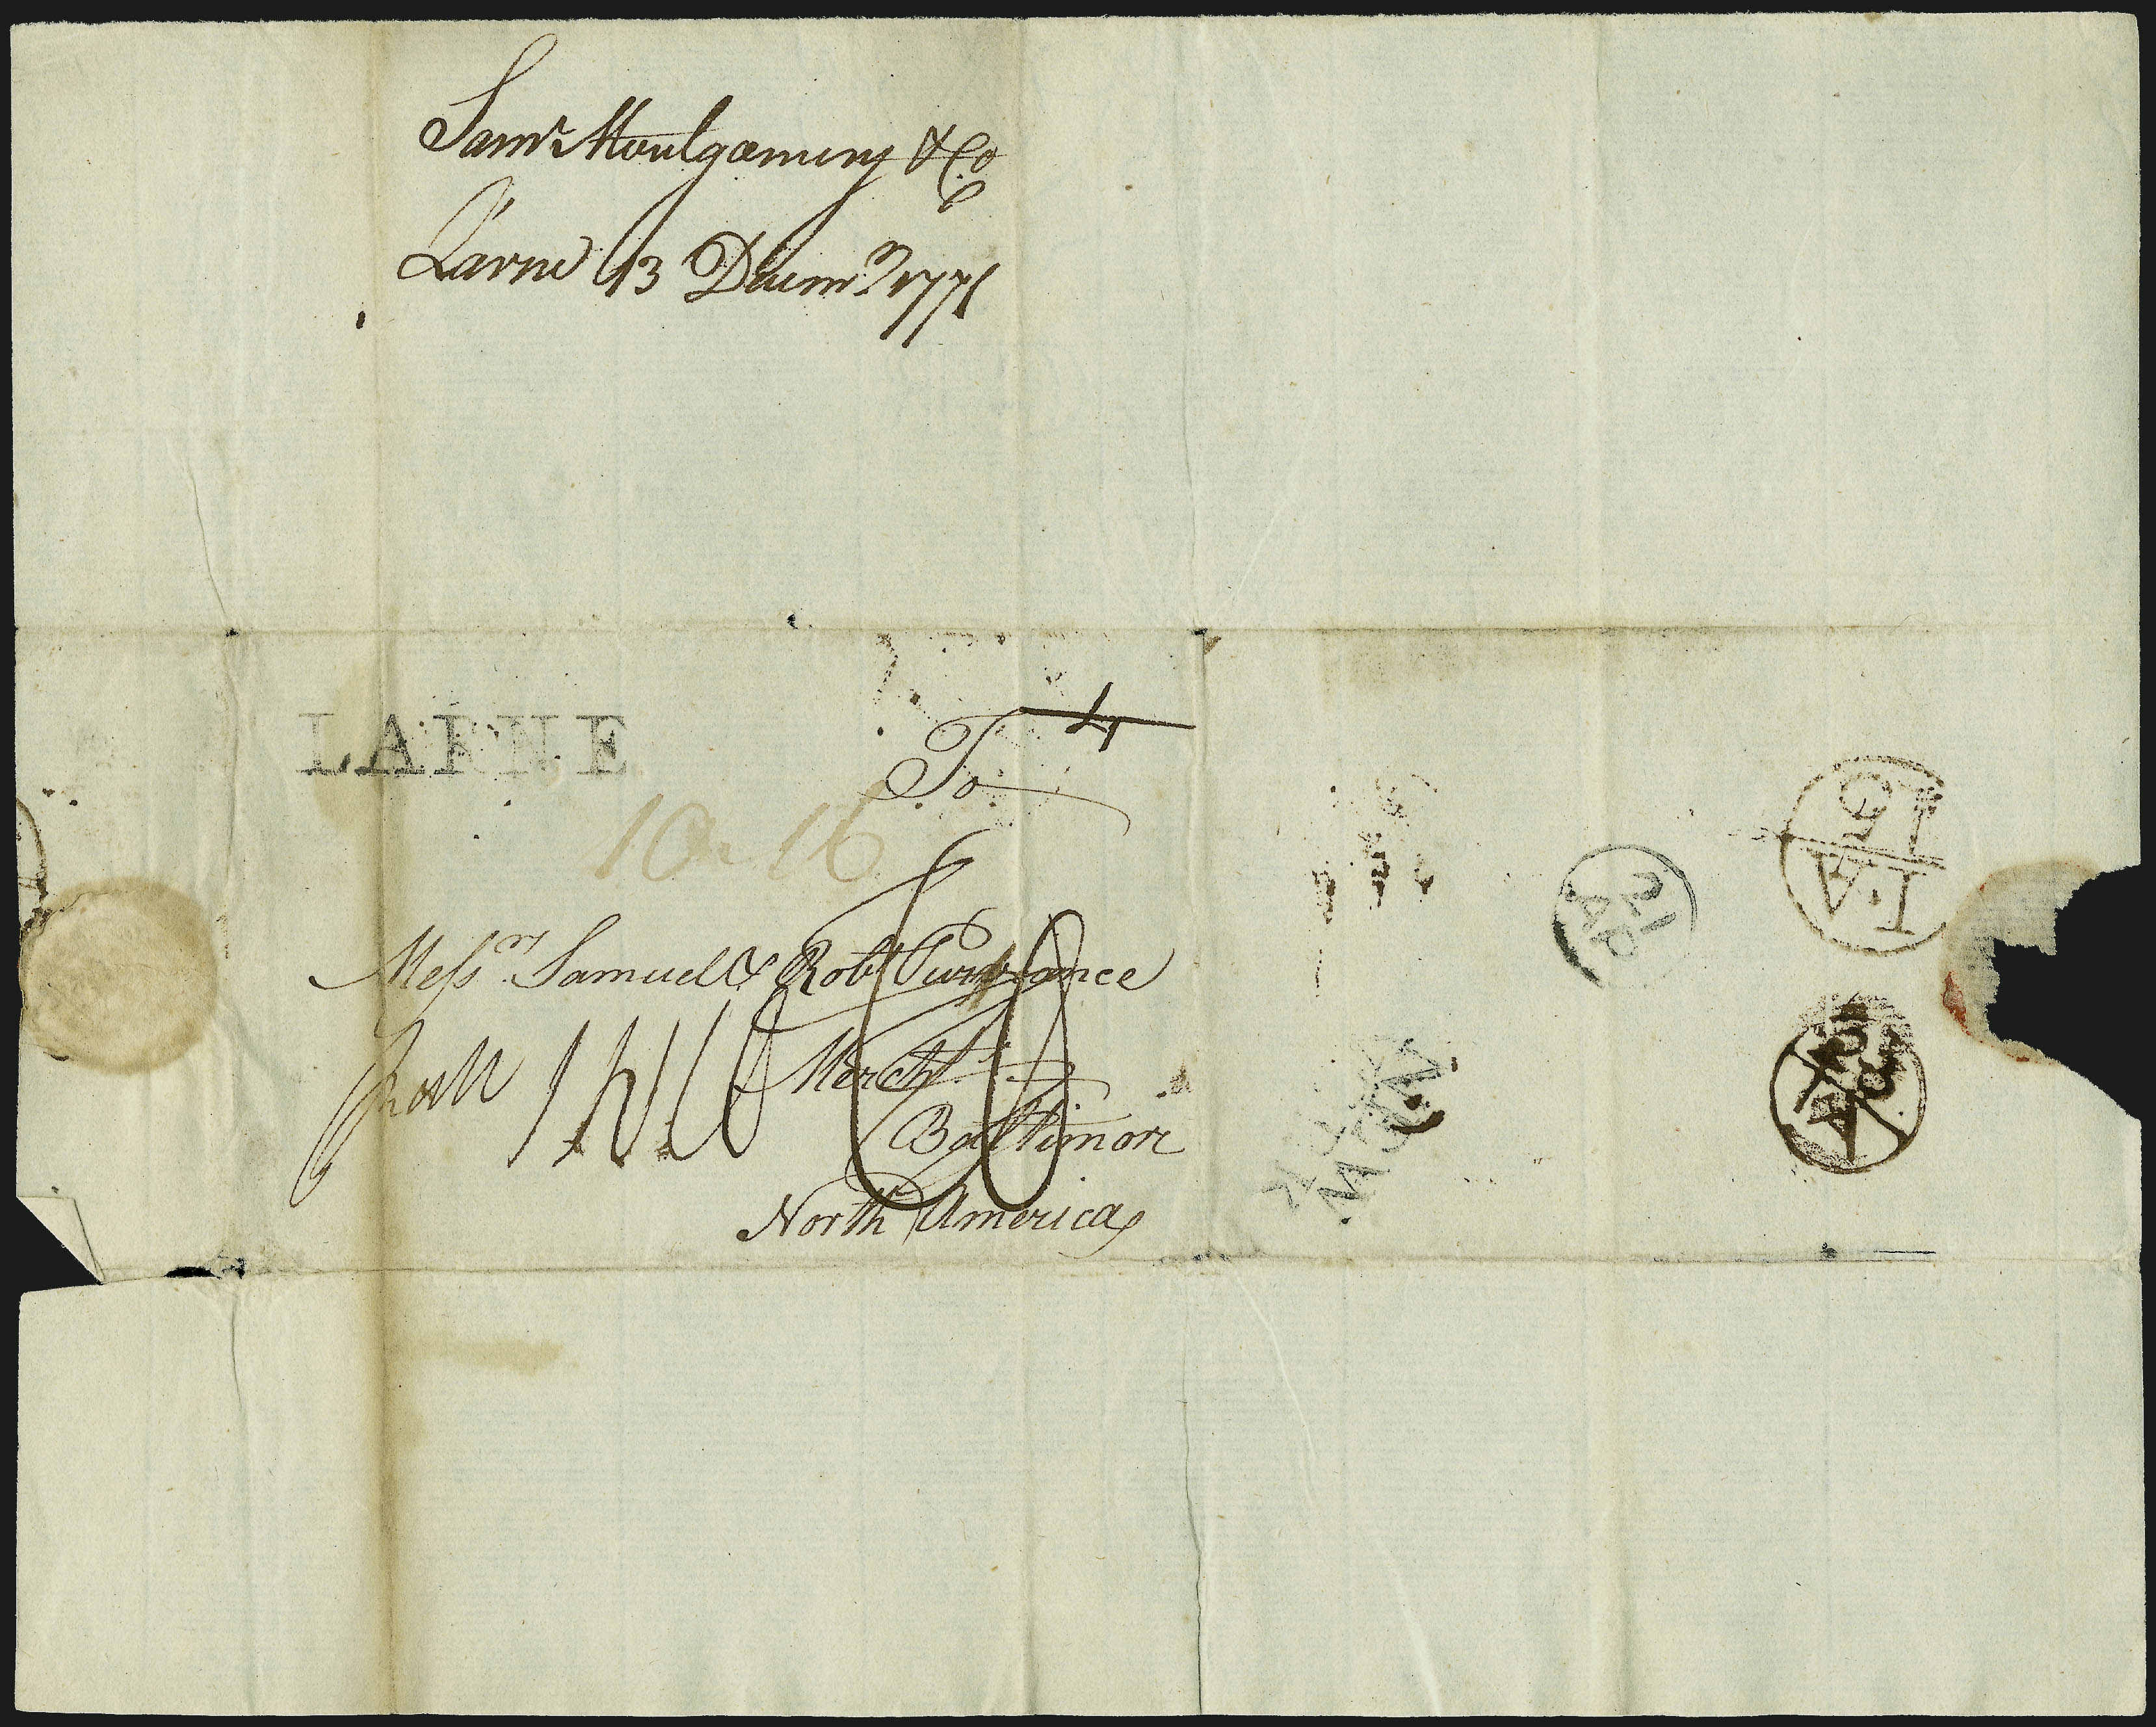 Saml Montgomery & Co
Larne 13 Decemr 1771
LARNE
4
To
10 16
Messrs Samuel & Robt Purviance
Mercht
Baltimore
North America
NEW
21
AP